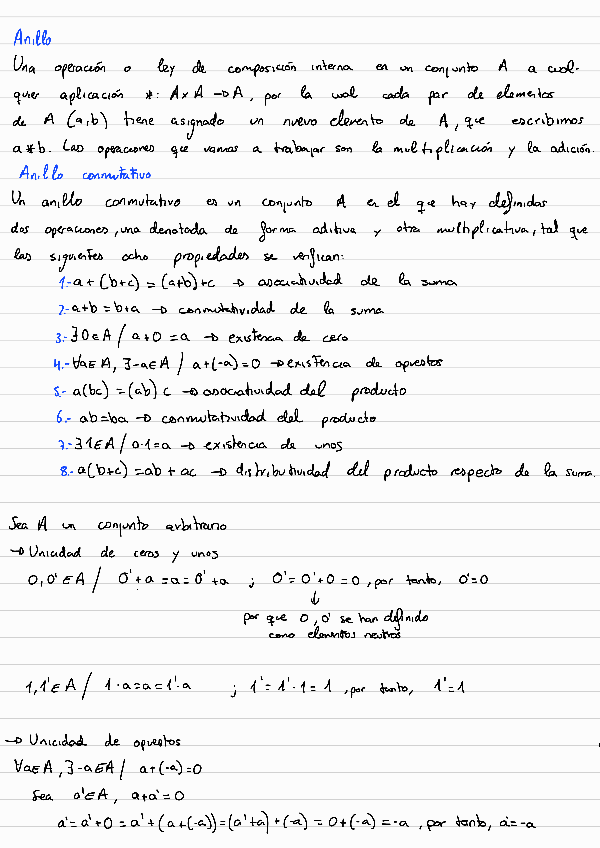 Anillo
Una operación o ley de composición interna en un conjunto A a cual-
quier aplicación *: A x A → A, por la cual cada par de elementos
de A (a,b) tiene asignado un nuevo elemento de A, que escribimos
a * b. Las operaciones que vamos a trabajar son la multiplicación y la adición.
Anillo conmutativo
Un anillo conmutativo es un conjunto A en el que hay definidas
dos operaciones, una denotada de forma aditiva y otra multiplicativa, tal que
las siguientes ocho propiedades se verifican:
1.- a + (b+c) = (a+b)+c → asociatividad de la suma
2.- a+b = b+a → conmutatividad de la suma
3.- ∃0∈A / a+0 = a → existencia de cero
4.- ∀a∈A, ∃-a∈A / a+(-a) = 0 → existencia de opuestos
5.- a(bc) = (ab)c → asociatividad del producto
6.- ab = ba → conmutatividad del producto
7.- ∃1∈A / a·1=a → existencia de unos
8.- a(b+c) = ab + ac → distributividad del producto respecto de la suma.
Sea A un conjunto arbitrario
→ Unicidad de ceros y unos
0,0'∈A / 0'+a = a = 0'+a ; 0' = 0'+0 = 0, por tanto, 0'=0
↓
por que 0,0' se han definido
como elementos neutros
1,1'∈A / 1·a=a=1'·a ; 1' = 1'·1 = 1, por tanto, 1'=1
→ Unicidad de opuestos
∀a∈A, ∃-a∈A / a+(-a)=0
Sea a'∈A, a+a' = 0
a' = a'+0 = a'+(a+(-a)) = (a'+a)+(-a) = 0+(-a) = -a, por tanto, a'=-a